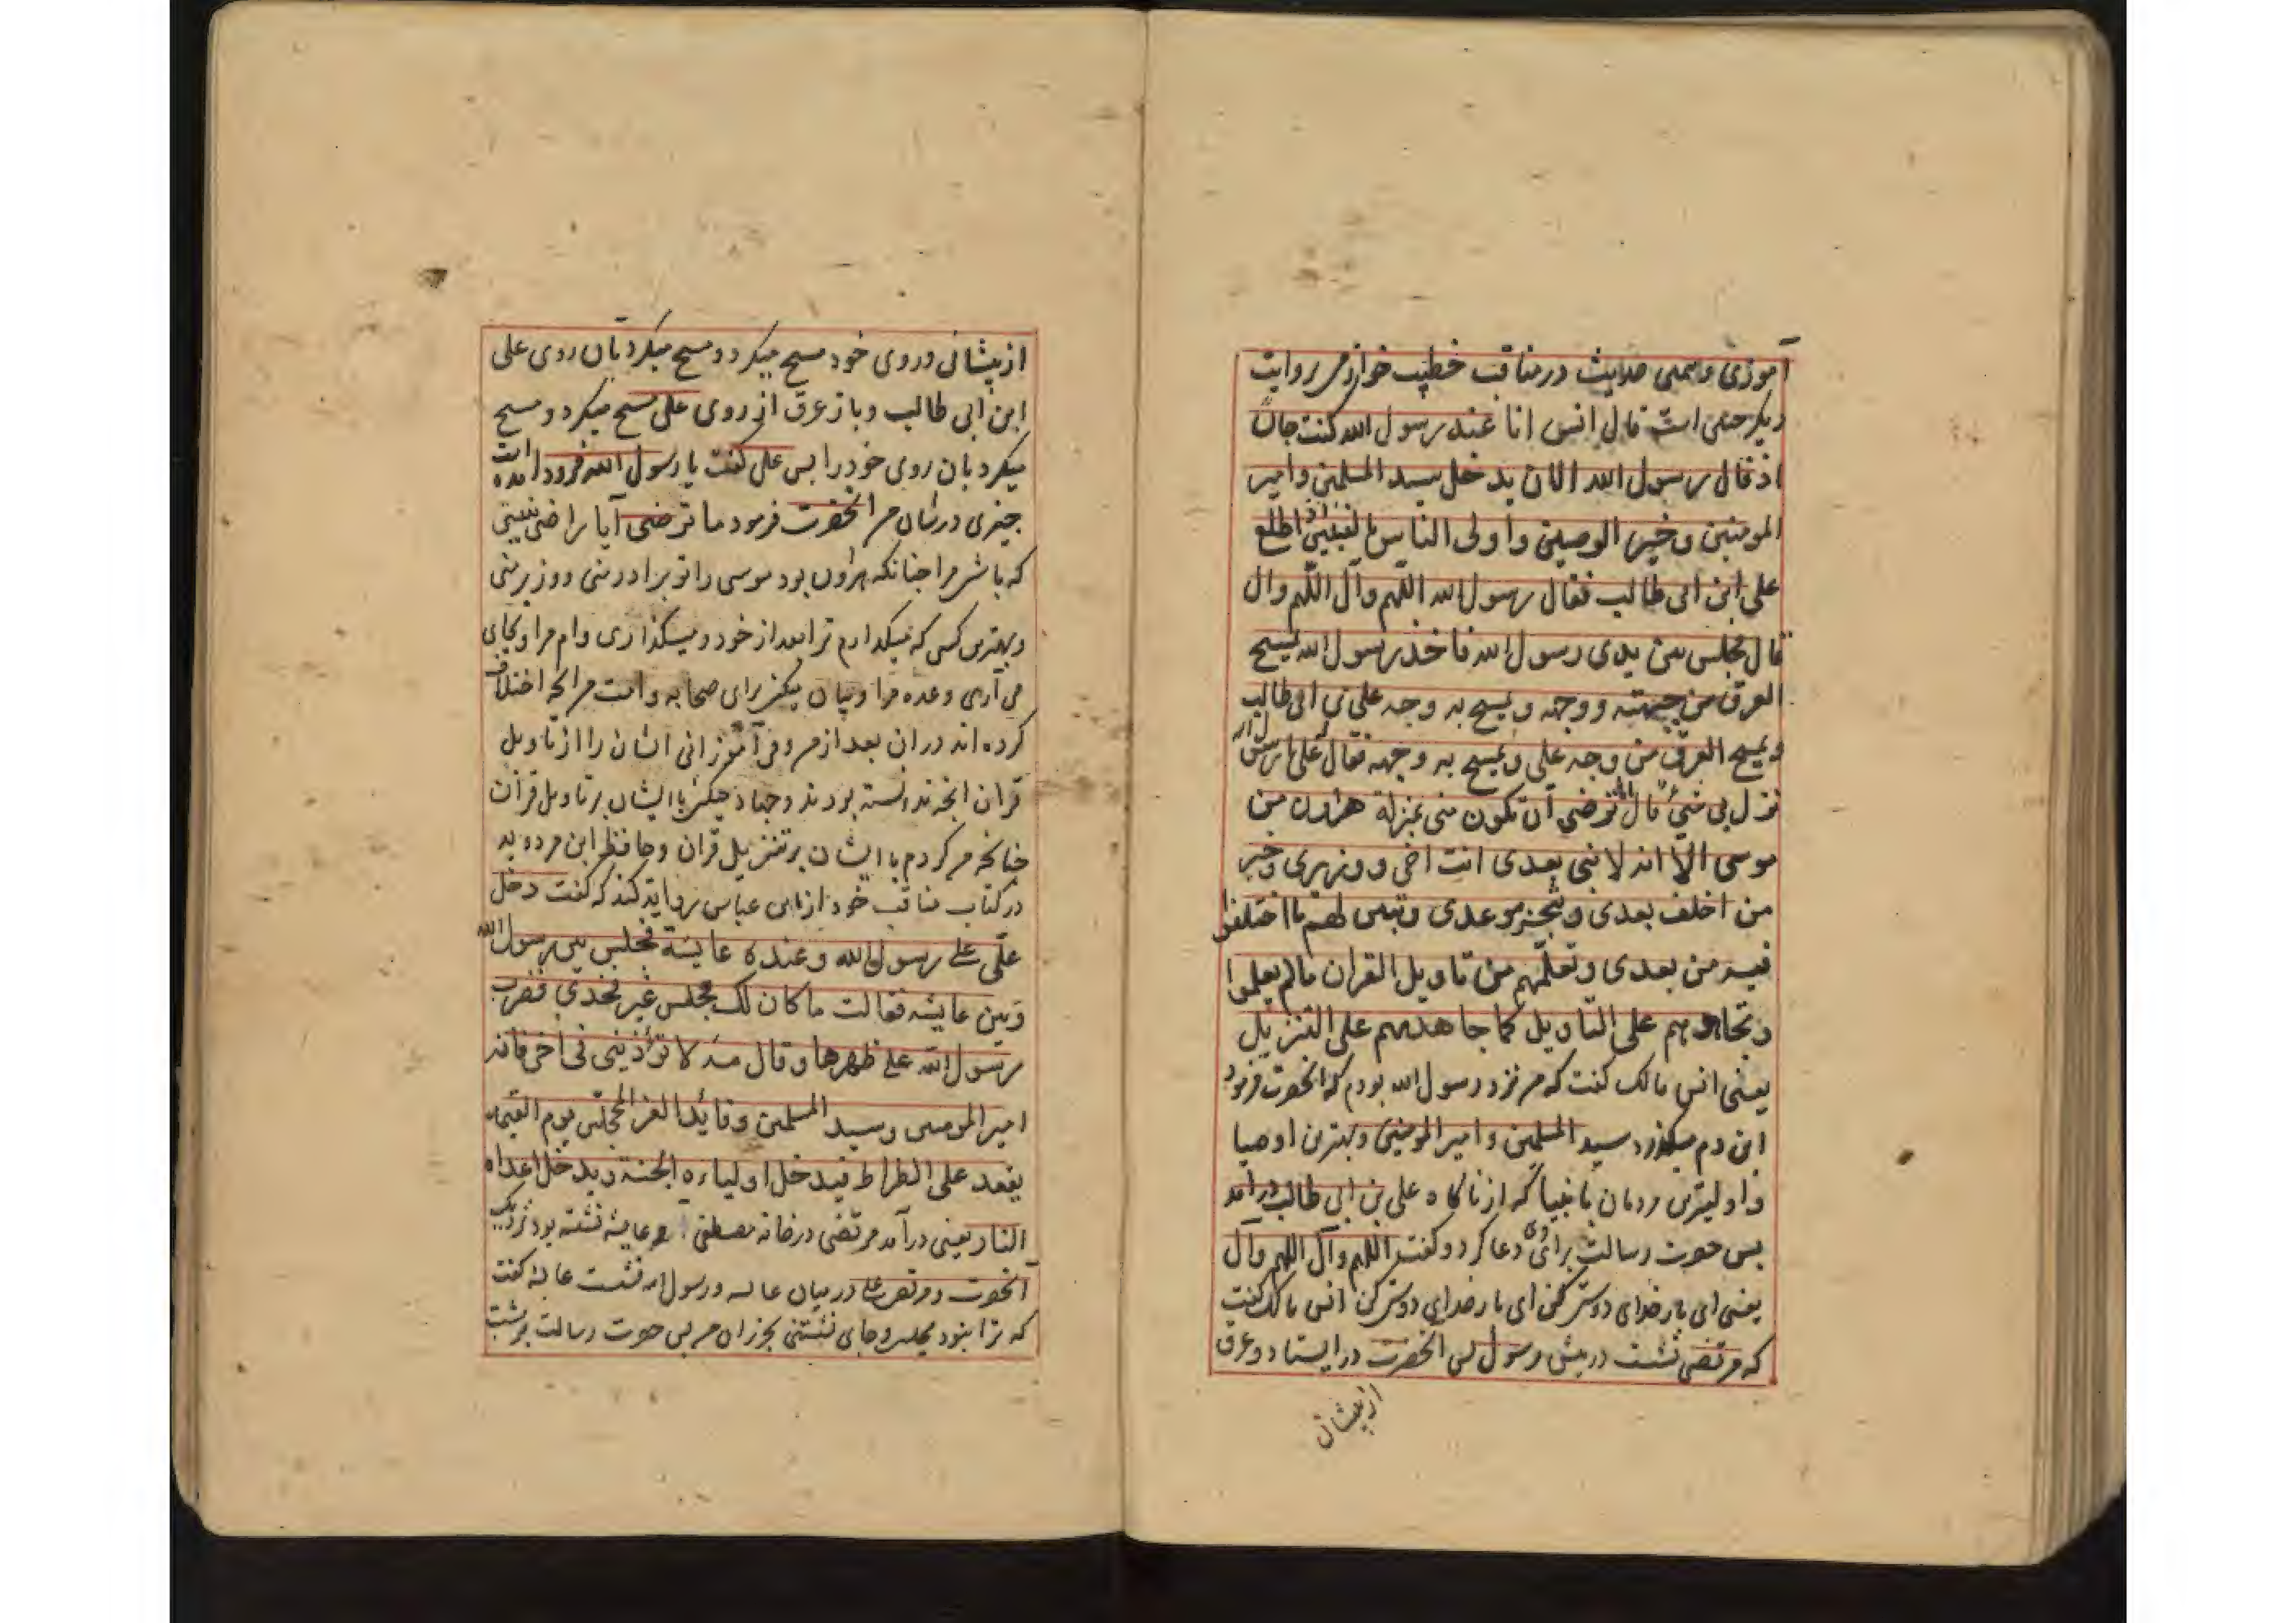 آموزی و همین حدیث در مناقب خطیب خوارزمی بروایت
دیگر چنین است قال انس انا عند رسول الله کنت جالسا
اذ قال رسول الله الان یدخل سید المسلمین و امیر
المومنین و خیر الوصیین و اولی الناس بالنبیین اذ اطلع
علی ابن ابی طالب فقال رسول الله اللهم وال اللهم وال
قال فجلس بین یدی رسول الله فاخذ رسول الله یمسح
العرق من جبهته و وجهه و یمسح به وجه علی بن ابی طالب
و یمسح العرق من وجه علی و یمسح به وجهه فقال علی یا رسول الله
نزل بی شیء قال اما ترضی ان تکون منی بمنزلة هرون من
موسی الا انه لا نبی بعدی انت اخی و وزیری و خیر
من اخلف بعدی و تنجز موعدی و تبین لهم ما اختلفوا
فیه من بعدی و تعلمهم من تاویل القران ما لم یعلموا
و تجاهدهم علی التاویل کما جاهدتهم علی التنزیل
یعنی انس مالک کفت که من نزد رسول الله بودم که انحضرت فرمود
این دم میکذرد سید المسلمین و امیر المومنین و بهترین اوصیا
و اولیترین مردمان بانبیا که از ناکاه علی بن ابی طالب درآمد
بس حضرت رسالت برای وی دعا کرد و کفت اللهم وال اللهم وال
یعنی ای بار خدای دوست کن ای بار خدای دوست کن انس مالک کفت
که مرتضی نشست در پیش رسول بس انحضرت در ایستاد و عرق
از پیشانی
از پیشانی و روی خود مسح میکرد و مسح میکرد بان روی علی
ابن ابی طالب و باز عرق از روی علی مسح میکرد و مسح
میکرد بان روی خود را بس علی کفت یا رسول الله فرود آمده است
چیزی در شان من انحضرت فرمود ما ترضی آیا راضی نیستی
که باشی مرا چنانکه هرون بود موسی را تو برادر منی و وزیر منی
و بهترین کسی که میکذارم ترا بعد از خود و میکذاری وام مرا و بجای
می آری وعده مرا و بیان میکنی برای صحابه و امت من انچه اختلاف
کرده اند در ان بعد از من و می آموزانی ایشان را از تاویل
قران انچه ندانسته بودند و جهاد میکنی با ایشان بر تاویل قران
چنانچه من کردم با ایشان بر تنزیل قران و حافظ ابن مردویه
در کتاب مناقب خود از ابن عباس روایت کند که کفت دخل
علی علی رسول الله و عنده عایشة فجلس بین رسول الله
و بین عایشه فقالت ما کان لک مجلس غیر فخذی فضرب
رسول الله علی ظهرها و قال مه لا تؤذینی فی اخی فانه
امیر المومنین و سید المسلمین و قائد الغر المحجلین یوم القیمه
یقعد علی الصراط فیدخل اولیاءه الجنة و یدخل اعداه
النار یعنی درآمد مرتضی در خانه مصطفی و عایشه نشسته بود نزدیک
آنحضرت و مرتضی علی در میان عایشه و رسول الله نشست عایشه کفت
که ترا نبود مجلس و جای نشستنی بجز ران من بس حضرت رسالت بر پشت